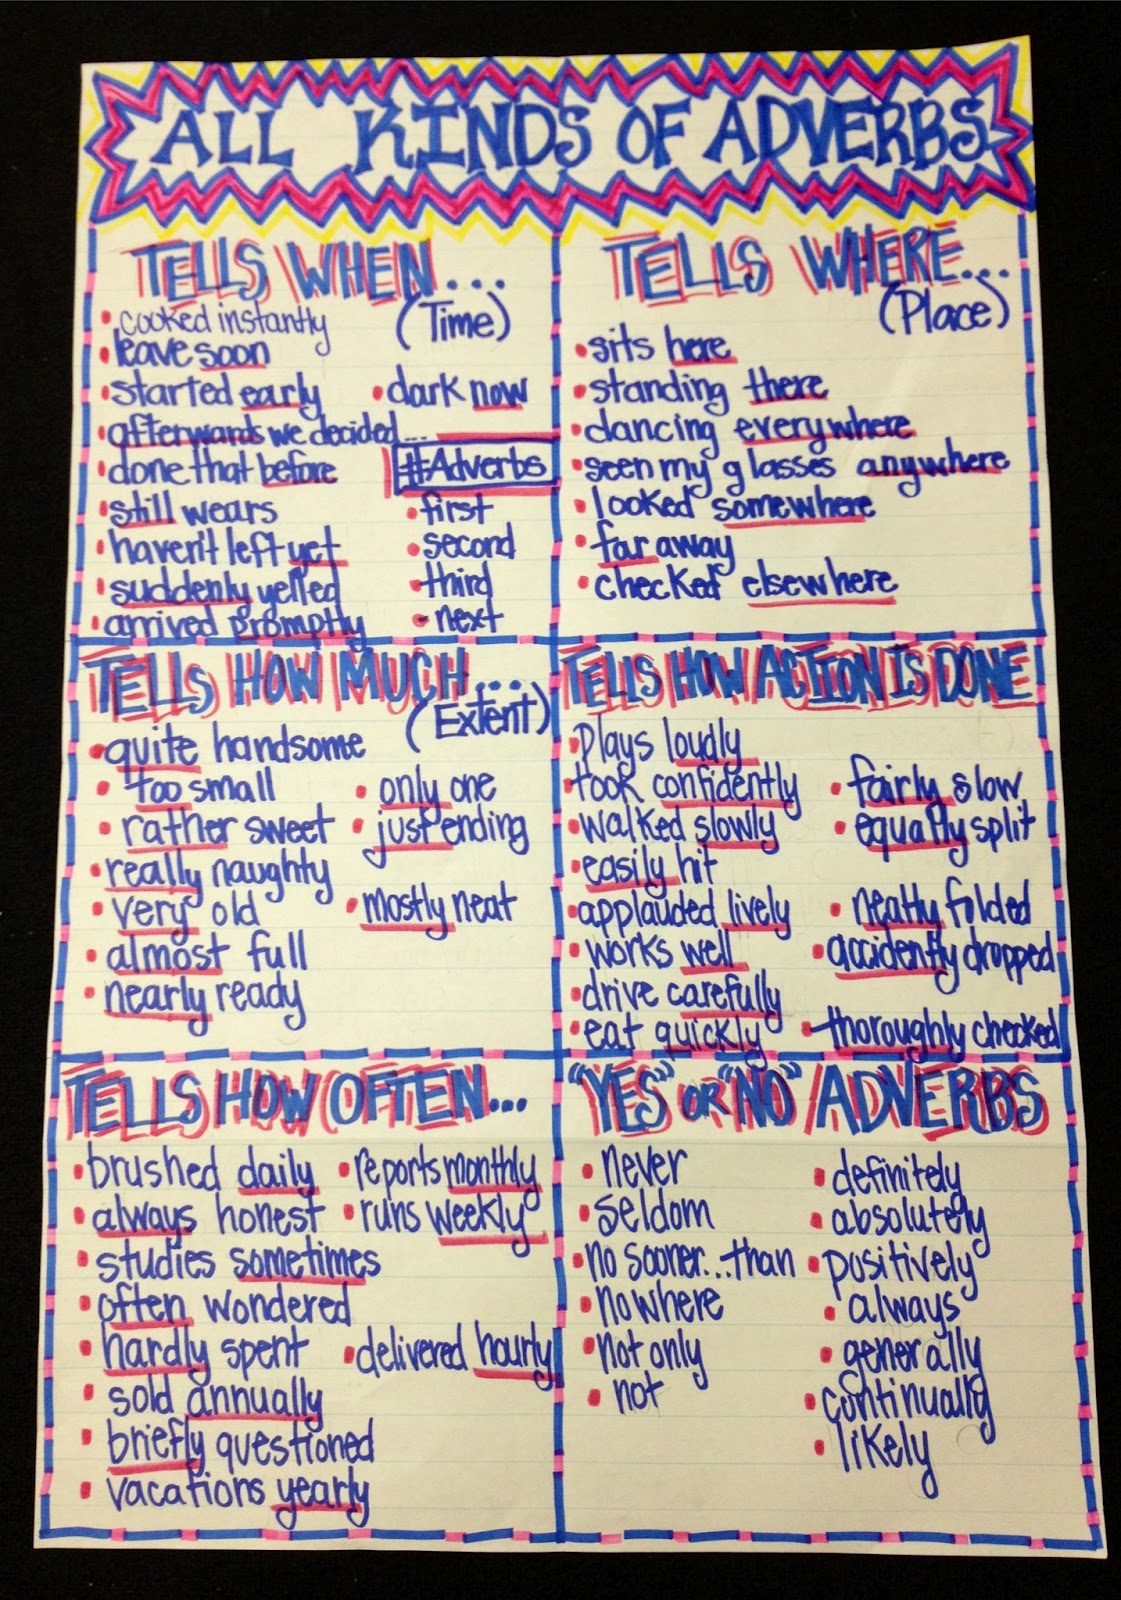 ALL KINDS OF ADVERBS
TELLS WHEN...
(Time)
• cooked instantly
• leave soon
• started early
• dark now
• afterwards we decided...
• done that before
#Adverbs
• still wears
• first
• haven't left yet
• second
• suddenly yelled
• third
• arrived promptly
• next
TELLS WHERE...
(Place)
• sits here
• standing there
• dancing everywhere
• seen my glasses anywhere
• looked somewhere
• far away
• checked elsewhere
TELLS HOW MUCH...
(Extent)
• quite handsome
• too small
• only one
• rather sweet
• just ending
• really naughty
• very old
• mostly neat
• almost full
• nearly ready
TELLS HOW ACTION IS DONE
• Plays loudly
• took confidently
• fairly slow
• walked slowly
• equally split
• easily hit
• applauded lively
• neatly folded
• works well
• accidently dropped
• drive carefully
• eat quickly
• thoroughly checked
TELLS HOW OFTEN...
• brushed daily
• reports monthly
• always honest
• runs weekly
• studies sometimes
• often wondered
• hardly spent
• delivered hourly
• sold annually
• briefly questioned
• vacations yearly
"YES" or "NO" / ADVERBS
• never
• definitely
• seldom
• absolutely
• no sooner...than
• positively
• nowhere
• always
• not only
• generally
• not
• continually
• likely